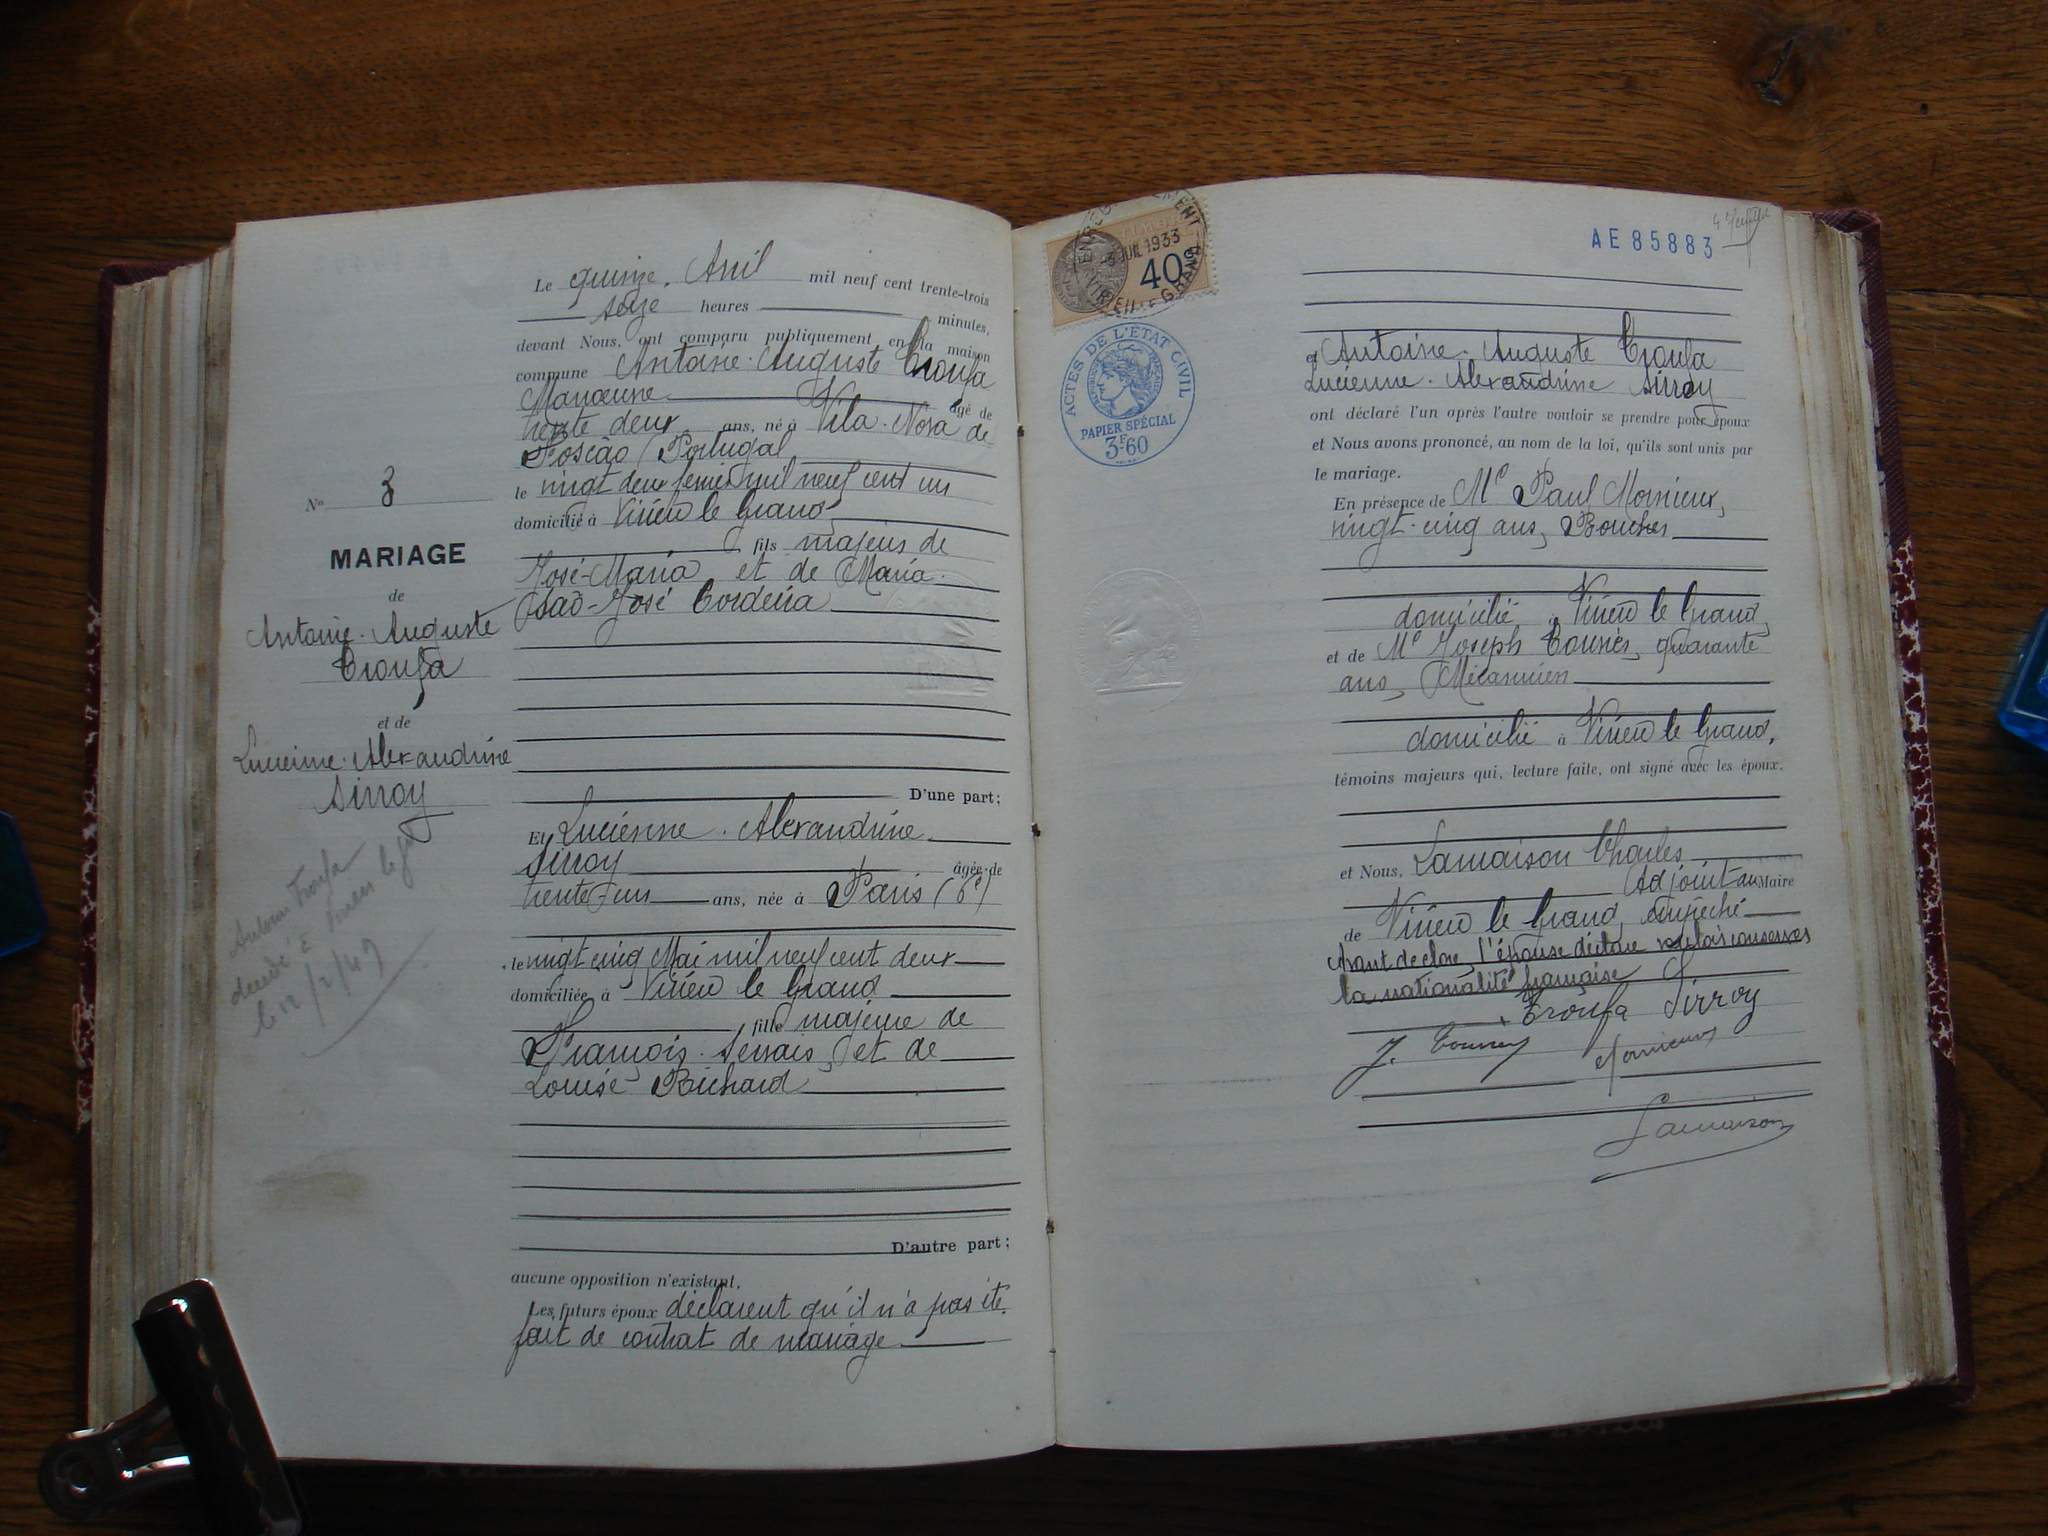 Le quinze Avril mil neuf cent trente-trois
seize heures minutes,
devant Nous, ont comparu publiquement en la maison
commune Antoine-Auguste Troufa
Manœuvre âgé de
trente deux ans, né à Vila-Nova de
Foscão (Portugal
le vingt deux février mil neuf cent un
domicilié à Virieu le Grand
fils majeur de
José-Maria et de Maria
São-José Cordeira
No 3
MARIAGE
de
Antoine-Auguste
Troufa
et de
Lucienne-Alexandrine
Sirroy
Troufa
décédé à Virieu le Gd
le 12/2/49
D'une part;
Et Lucienne-Alexandrine
Sirroy âgée de
trente-un ans, née à Paris (6e)
le vingt cinq Mai mil neuf cent deux
domiciliée à Virieu le Grand
fille majeure de
François-Servais, et de
Louise Richard
D'autre part;
aucune opposition n'existant,
Les futurs époux déclarent qu'il n'a pas été
fait de contrat de mariage
ENREGISTREMENT
JUIL 1933
40
VIRIEU-LE-GRAND
ACTES DE L'ÉTAT CIVIL
PAPIER SPÉCIAL
3F60
AE 85883
et Antoine-Auguste Troufa
Lucienne-Alexandrine Sirroy
ont déclaré l'un après l'autre vouloir se prendre pour époux
et Nous avons prononcé, au nom de la loi, qu'ils sont unis par
le mariage.
En présence de Mr Paul Mornieux,
vingt-cinq ans, Boucher
domicilié à Virieu le Grand,
et de Mr Joseph Tournès, quarante
ans, Mécanicien
domicilié à Virieu le Grand,
témoins majeurs qui, lecture faite, ont signé avec les époux.
et Nous, Lamaison Charles
Adjoint au Maire
de Virieu le Grand, empêché
Avant de clore l'épouse déclare vouloir conserver
la nationalité française
Troufa Sirroy
J. Mornieux
Lamaison